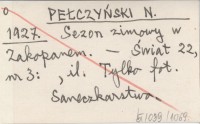 PEŁCZYŃSKI N.
1927. Sezon zimowy w
Zakopanem. — Świat 22,
nr 3: , il. Tylko fot.
Saneczkarstwo.